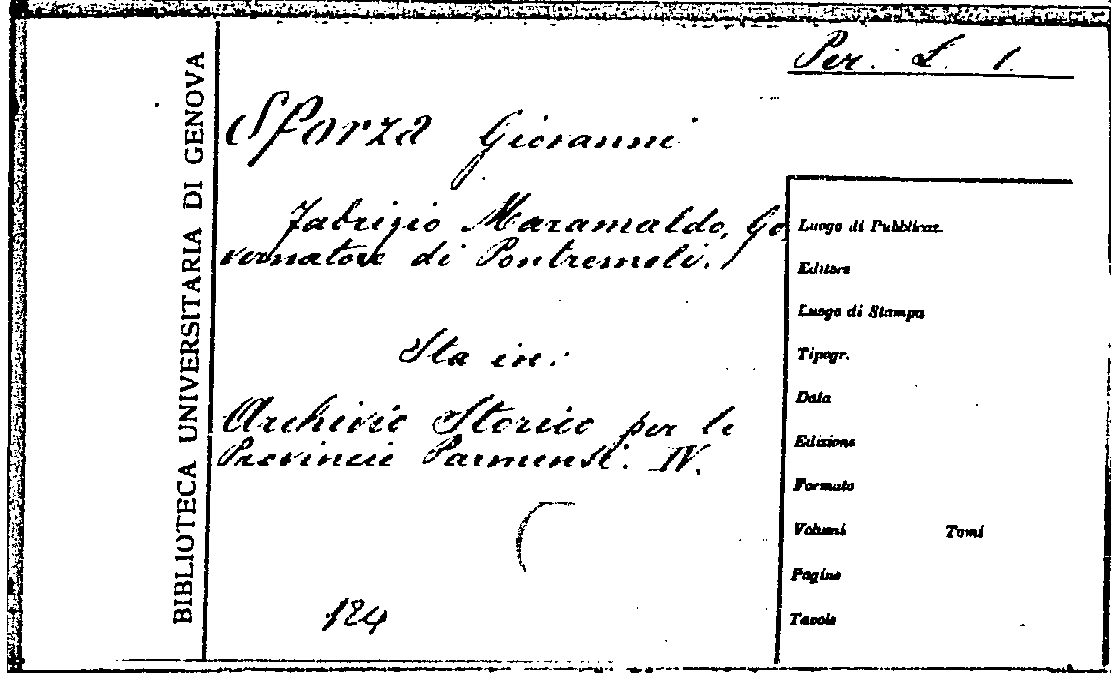 Per. L. 1.
BIBLIOTECA UNIVERSITARIA DI GENOVA
Sforza Giovanni
Fabrizio Maramaldo, Go
vernatore di Pontremoli.
Sta in:
Archivio Storico per le
Provincie Parmensi. IV.
124
Luogo di Pubblicaz.
Editore
Luogo di Stampa
Tipogr.
Data
Edizione
Formato
Volumi Tomi
Pagine
Tavole